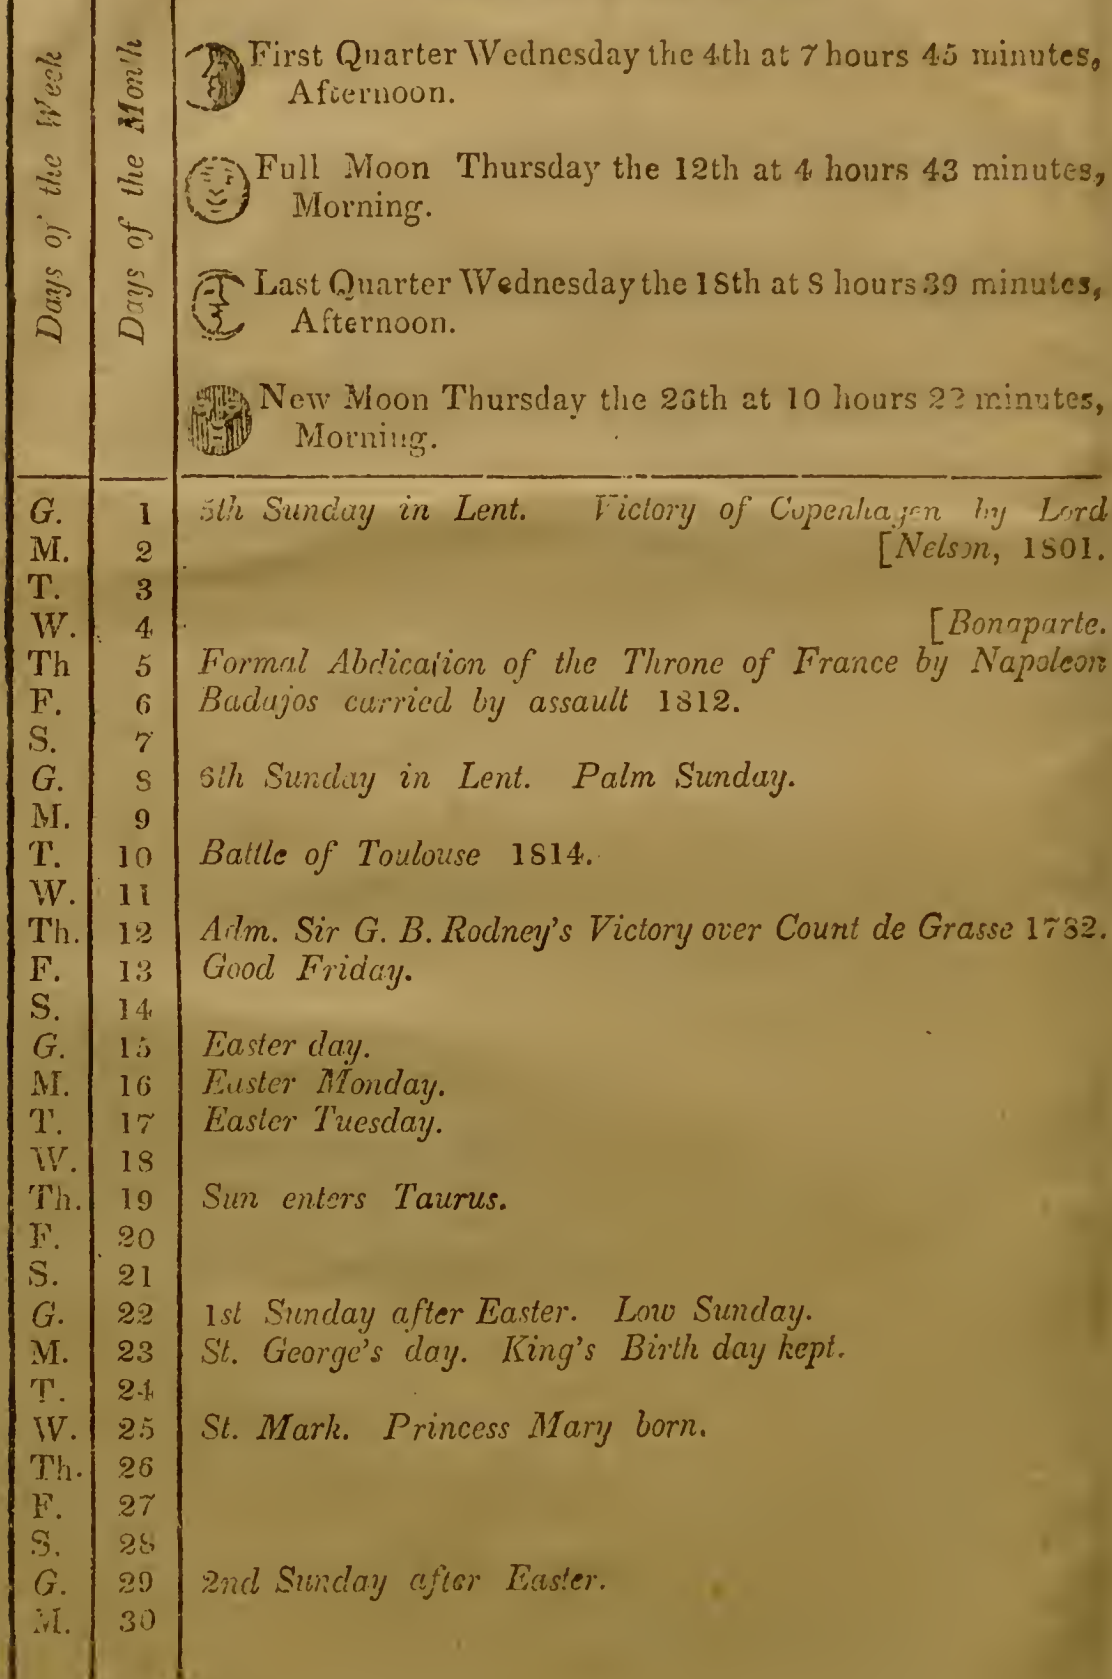 Days of the Week
Days of the Month
First Quarter Wednesday the 4th at 7 hours 45 minutes,
Afternoon.
Full Moon Thursday the 12th at 4 hours 43 minutes,
Morning.
Last Quarter Wednesday the 18th at 8 hours 39 minutes,
Afternoon.
New Moon Thursday the 26th at 10 hours 22 minutes,
Morning.
G. 1 5th Sunday in Lent. Victory of Copenhagen by Lord
M. 2 [Nelson, 1801.
T. 3
W. 4 [Bonaparte.
Th 5 Formal Abdication of the Throne of France by Napoleon
F. 6 Badajos carried by assault 1812.
S. 7
G. 8 6th Sunday in Lent. Palm Sunday.
M. 9
T. 10 Battle of Toulouse 1814.
W. 11
Th. 12 Adm. Sir G. B. Rodney's Victory over Count de Grasse 1782.
F. 13 Good Friday.
S. 14
G. 15 Easter day.
M. 16 Easter Monday.
T. 17 Easter Tuesday.
W. 18
Th. 19 Sun enters Taurus.
F. 20
S. 21
G. 22 1st Sunday after Easter. Low Sunday.
M. 23 St. George's day. King's Birth day kept.
T. 24
W. 25 St. Mark. Princess Mary born.
Th. 26
F. 27
S. 28
G. 29 2nd Sunday after Easter.
M. 30